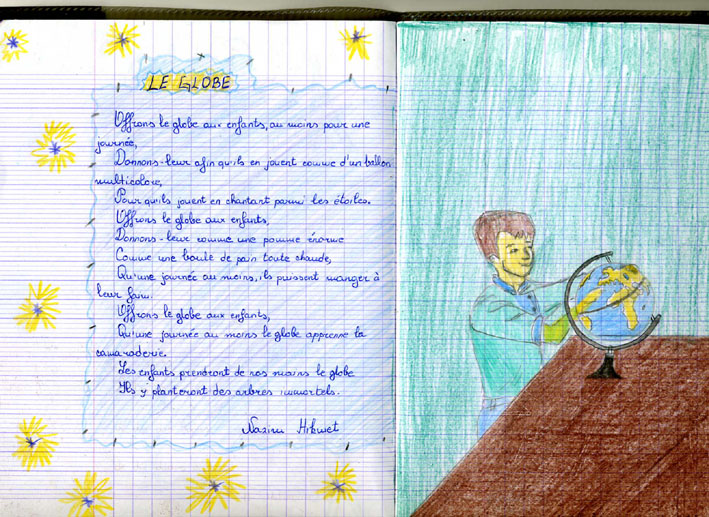 LE GLOBE
Offrons le globe aux enfants, au moins pour une
journée,
Donnons-leur afin qu'ils en jouent comme d'un ballon
multicolore,
Pour qu'ils jouent en chantant parmi les étoiles.
Offrons le globe aux enfants,
Donnons-leur comme une pomme énorme
Comme une boule de pain toute chaude,
Qu'une journée au moins, ils puissent manger à
leur faim.
Offrons le globe aux enfants,
Qu'une journée au moins le globe apprenne la
camaraderie.
Les enfants prendront de nos mains le globe
Ils y planteront des arbres immortels.
Nazim Hikmet